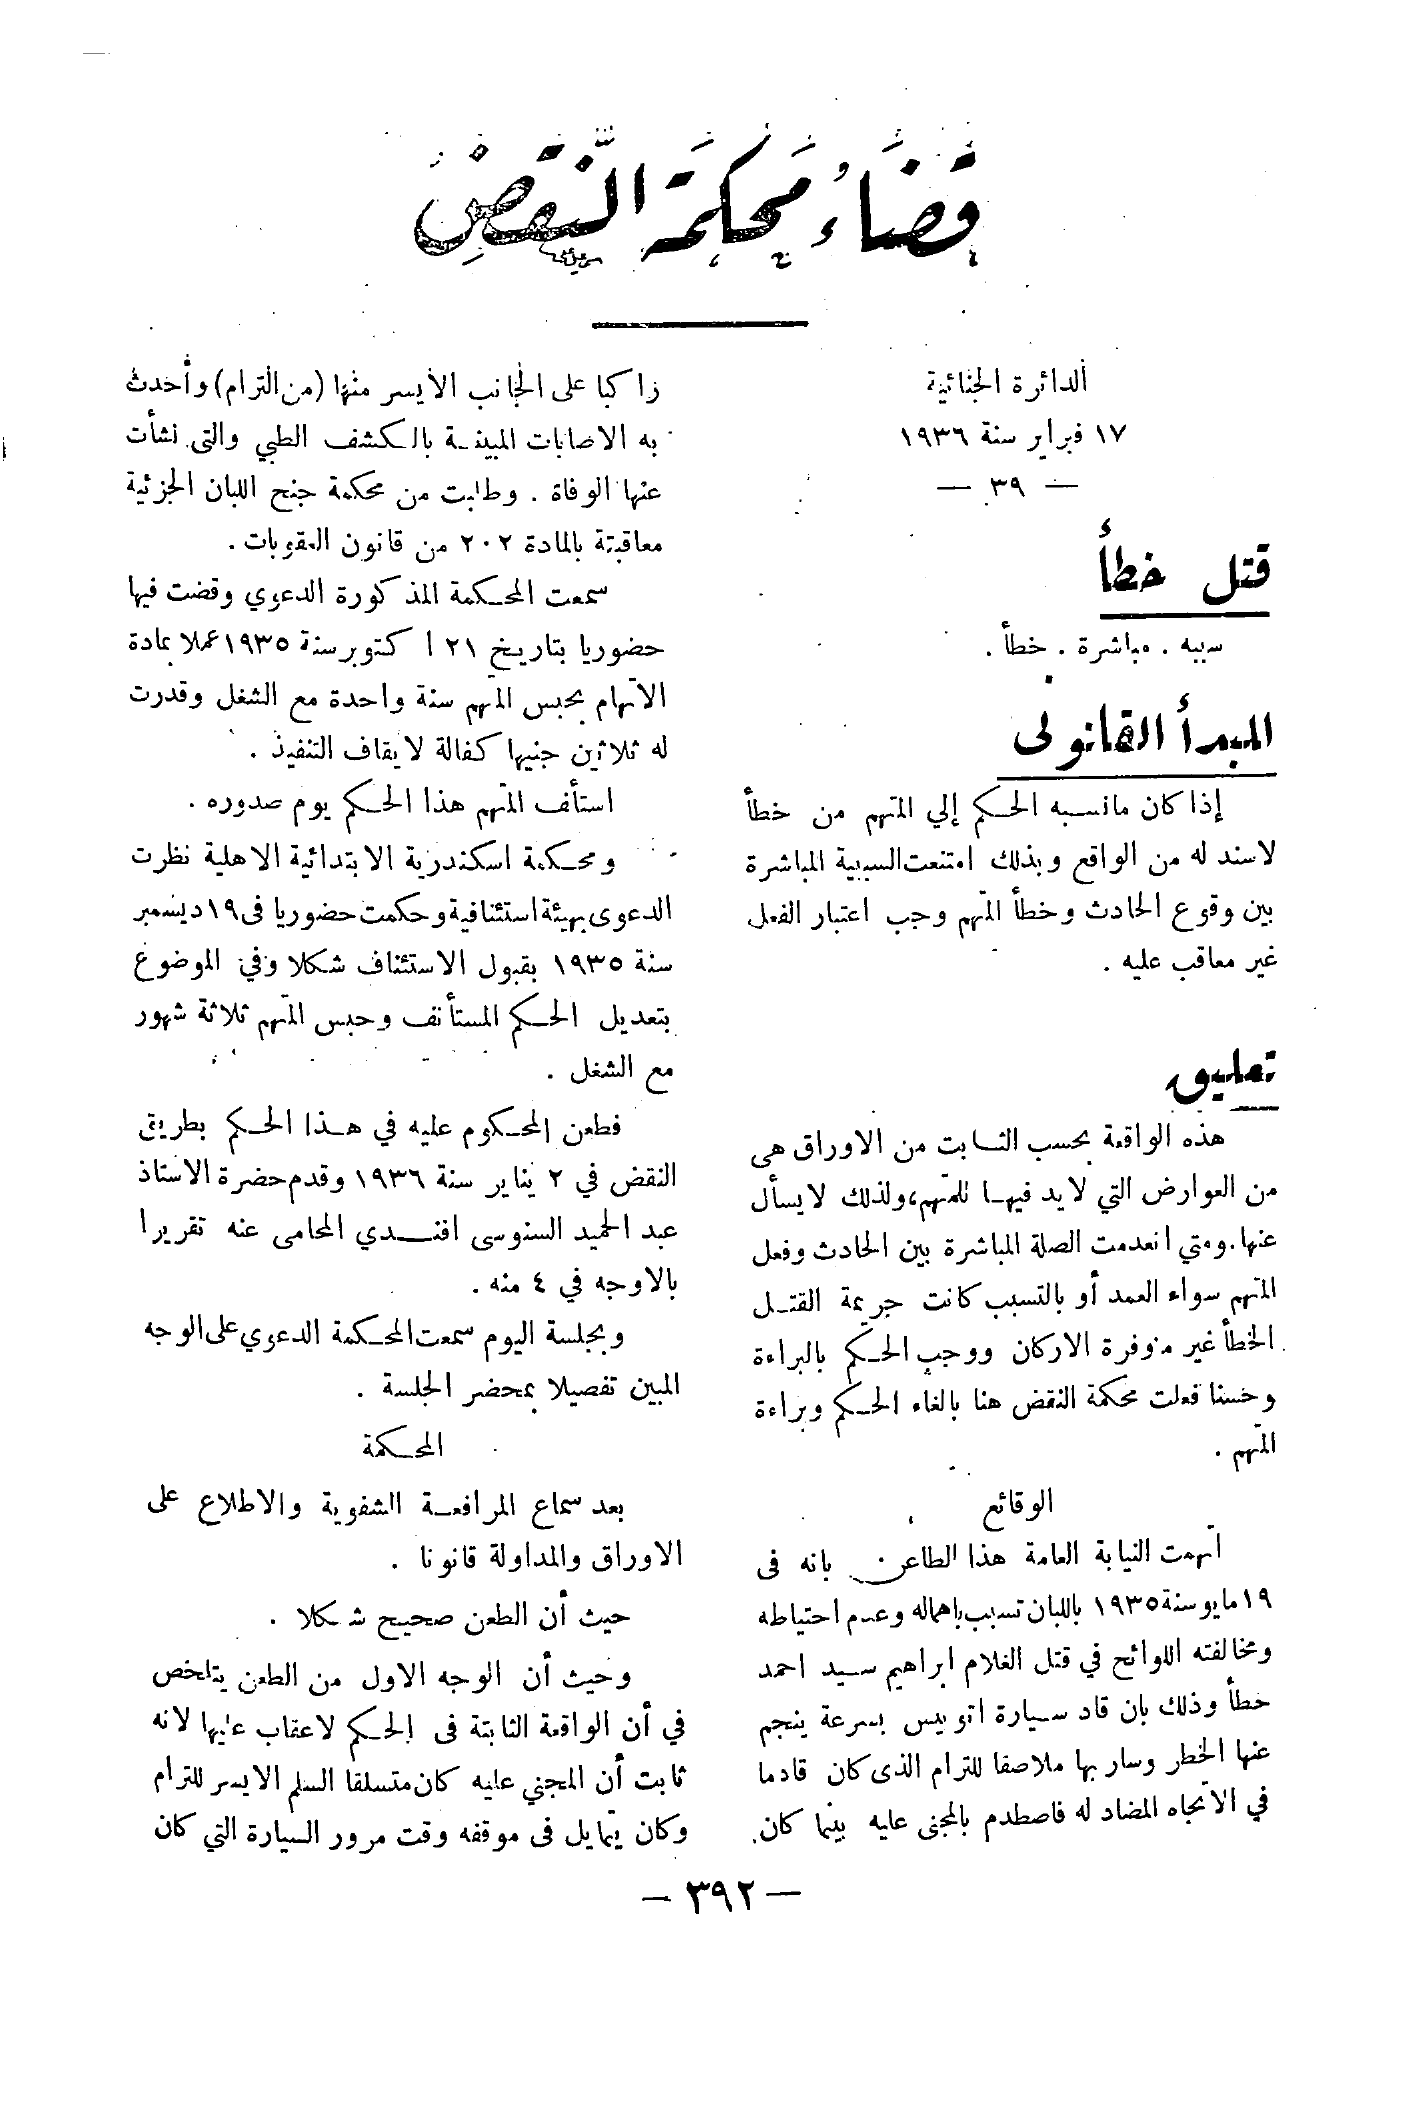 قضاء محكمة النقض
الدائرة الجنائية
١٧ فبراير سنة ١٩٣٦
— ٣٩ —
قتل خطأ
سببه . مباشرة . خطأ .
المبدأ القانوني
إذا كان مانسبه الحكم إلي المتهم من خطأ
لاسند له من الواقع وبذلك امتنعت السببية المباشرة
بين وقوع الحادث وخطأ المتهم وجب اعتبار الفعل
غير معاقب عليه .
تعليق
هذه الواقعة بحسب الثابت من الاوراق هى
من العوارض التي لا يد فيها للمتهم، ولذلك لا يسأل
عنها. ومتي انعدمت الصلة المباشرة بين الحادث وفعل
المتهم سواء العمد أو بالتسبب كانت جريمة القتل
الخطأ غير متوفرة الاركان ووجب الحكم بالبراءة
وحسنا فعلت محكمة النقض هنا بالغاء الحكم وبراءة
المتهم .
الوقائع
اتهمت النيابة العامة هذا الطاعن بانه فى
١٩ مايو سنة ١٩٣٥ باللبان تسبب باهماله وعدم احتياطه
ومخالفته اللوائح في قتل الغلام ابراهيم سيد احمد
خطأ وذلك بان قاد سيارة اتوبيس بسرعة ينجم
عنها الخطر وسار بها ملاصقا للترام الذى كان قادما
في الاتجاه المضاد له فاصطدم بالمجنى عليه بينما كان
راكبا على الجانب الأيسر منها (من الترام) وأحدث
به الاصابات المبينة بالكشف الطبي والتى نشأت
عنها الوفاة . وطلبت من محكمة جنح اللبان الجزئية
معاقبتة بالمادة ٢٠٢ من قانون العقوبات .
سمعت المحكمة المذكورة الدعوي وقضت فيها
حضوريا بتاريخ ٢١ اكتوبر سنة ١٩٣٥ عملا بمادة
الاتهام بحبس المتهم سنة واحدة مع الشغل وقدرت
له ثلاثين جنيها كفالة لايقاف التنفيذ .
استأنف المتهم هذا الحكم يوم صدوره .
ومحكمة اسكندرية الابتدائية الاهلية نظرت
الدعوى بهيئة استئنافية وحكمت حضوريا فى ١٩ ديسمبر
سنة ١٩٣٥ بقبول الاستئناف شكلا وفي الموضوع
بتعديل الحكم المستأنف وحبس المتهم ثلاثة شهور
مع الشغل .
فطعن المحكوم عليه في هذا الحكم بطريق
النقض في ٢ يناير سنة ١٩٣٦ وقدم حضرة الاستاذ
عبد الحميد السنوسى افندي المحامى عنه تقريرا
بالاوجه في ٤ منه .
وبجلسة اليوم سمعت المحكمة الدعوي على الوجه
المبين تفصيلا بمحضر الجلسة .
المحكمة
بعد سماع المرافعة الشفوية والاطلاع على
الاوراق والمداولة قانونا .
حيث أن الطعن صحيح شكلا .
وحيث أن الوجه الاول من الطعن يتلخص
في أن الواقعة الثابتة فى الحكم لاعقاب عليها لانه
ثابت أن المجني عليه كان متسلقا السلم الايسر للترام
وكان يتمايل فى موقفه وقت مرور السيارة التي كان
— ٣٩٢ —